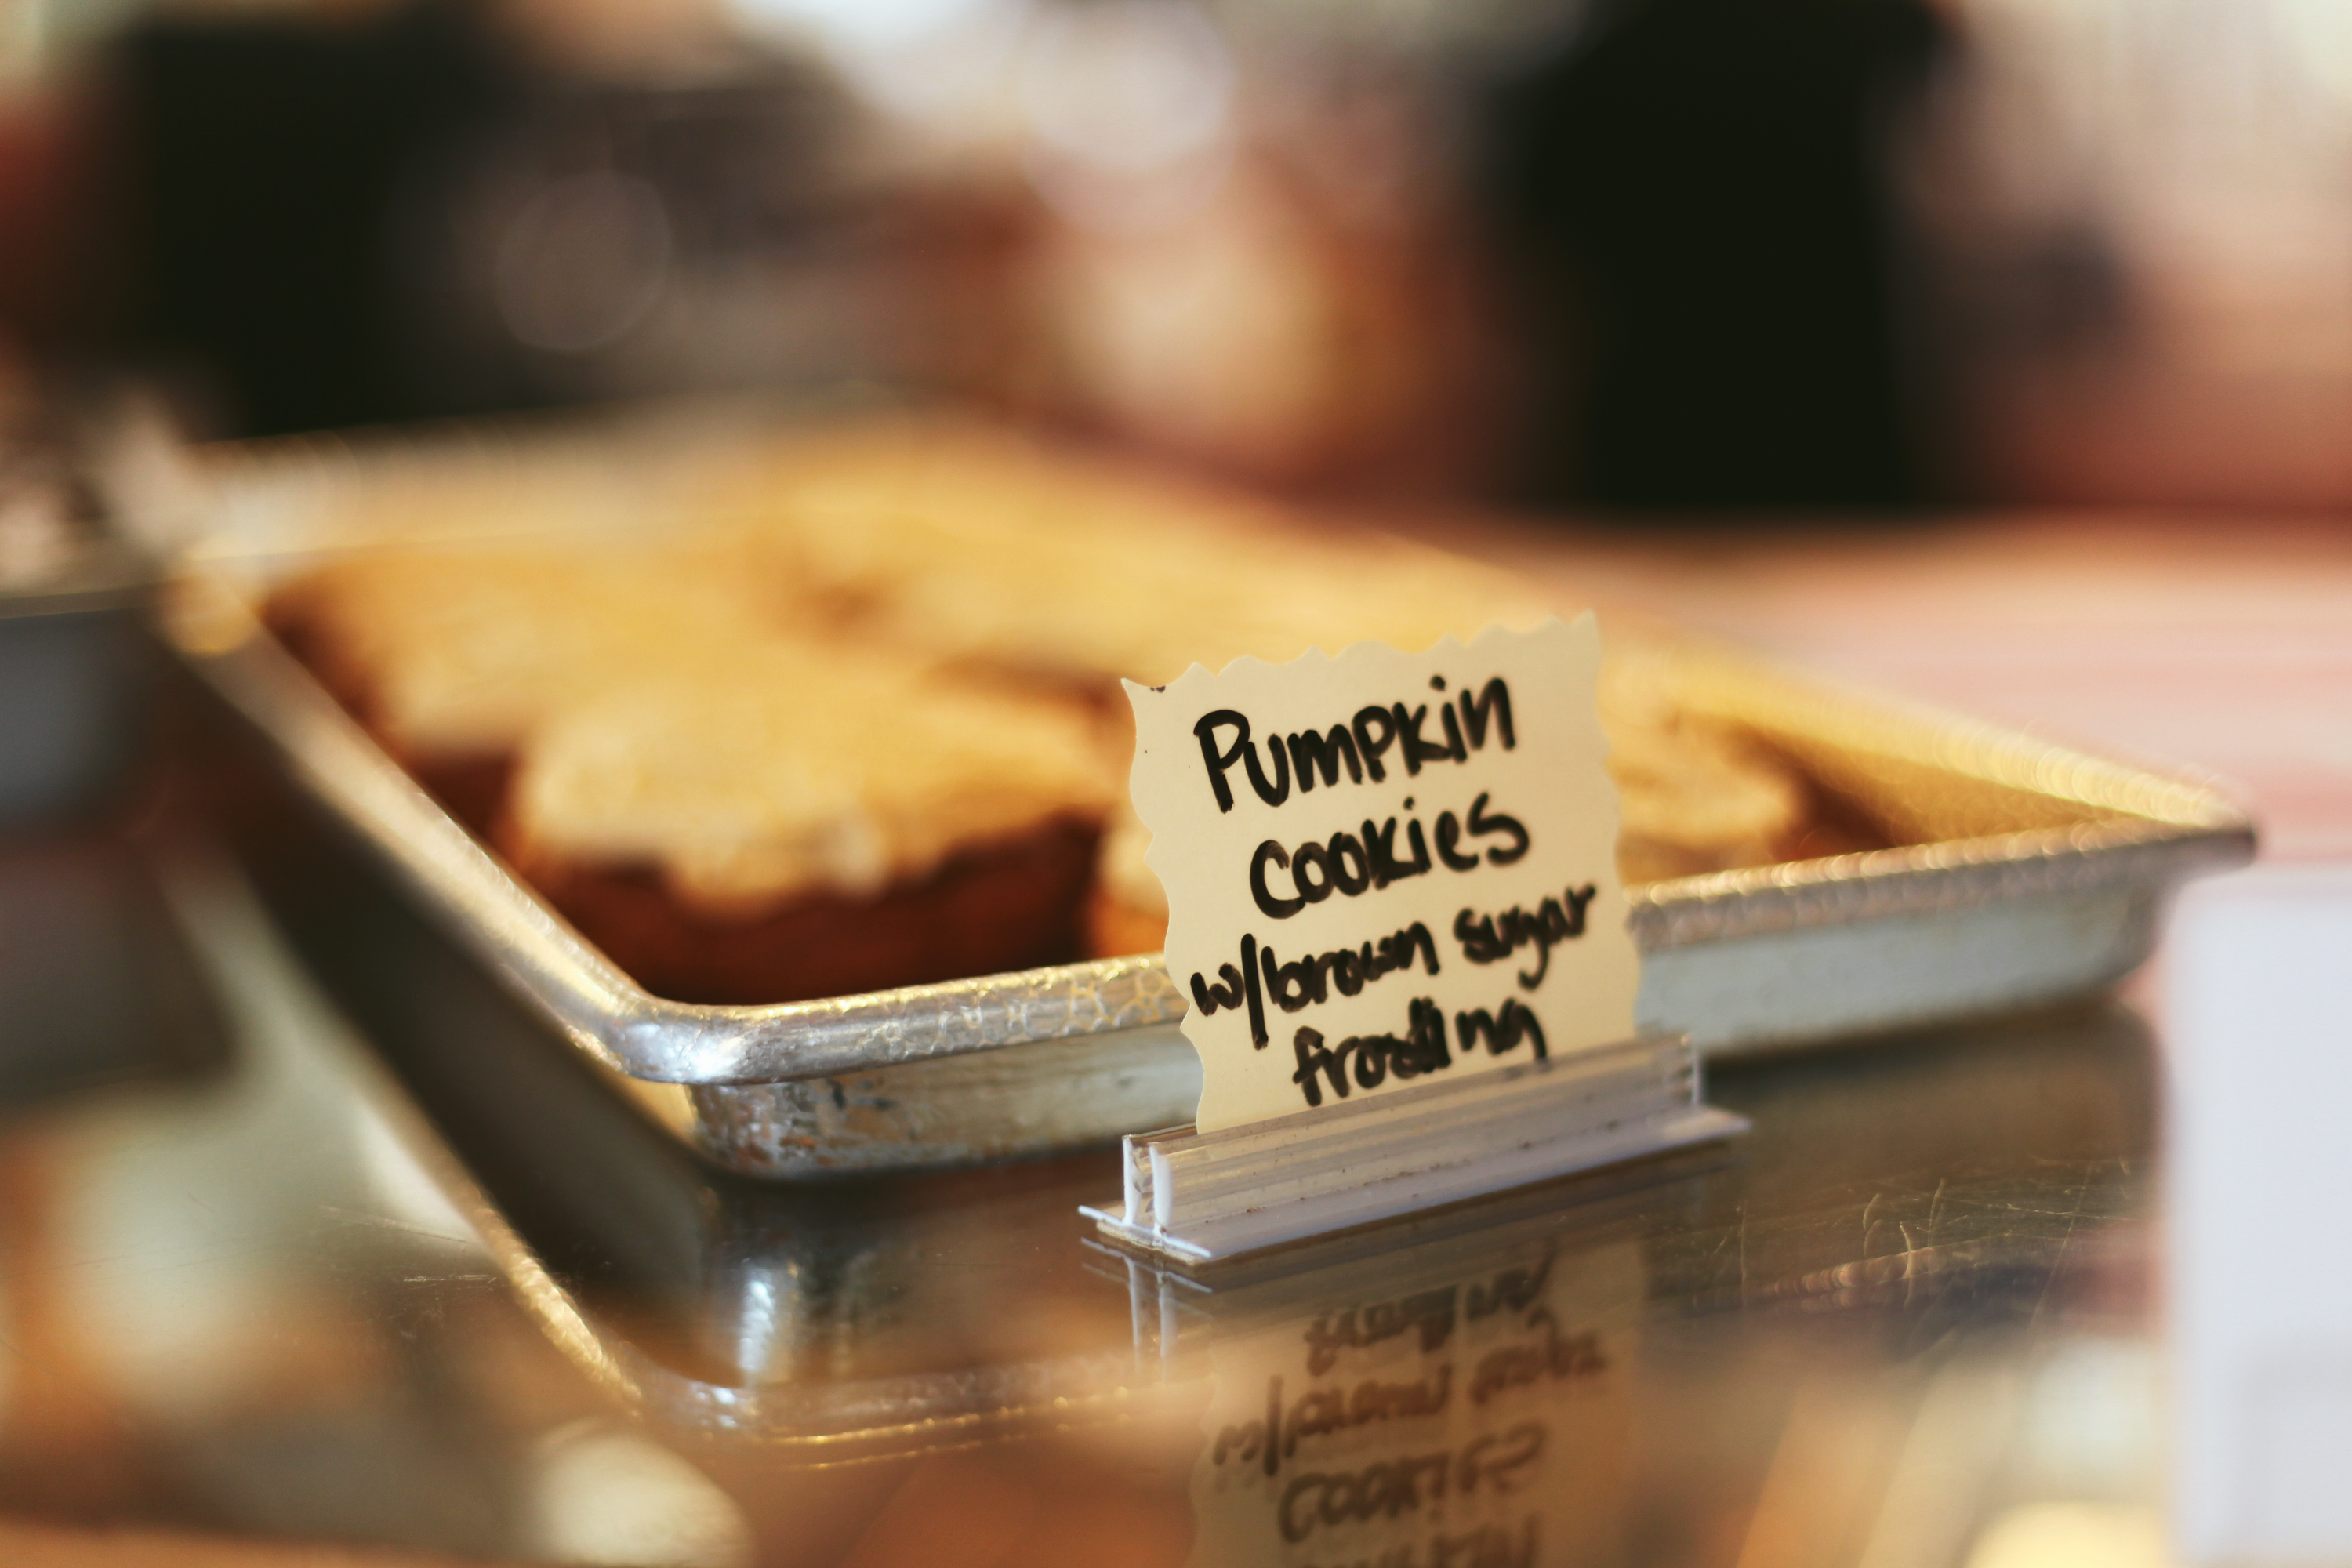 Pumpkin
Cookies
w/brown sugar
frosting